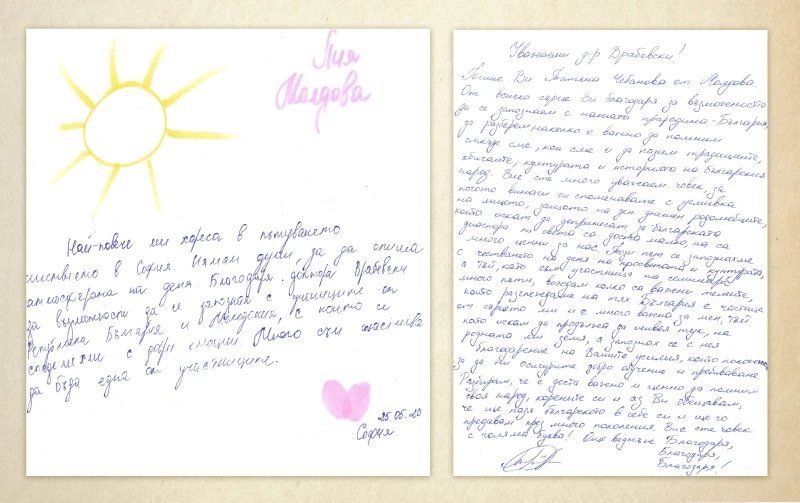 Лия
Молдова
Най-повече ми хареса в пътуването
шествието в София. Нямам думи, за да опиша
атмосферата на деня. Благодаря доктора Врабевски
за възможности за се запознах с учениците от
Република България и Македония, с които се
споделихме с добри емоции. Много съм щастлива
да бъда една от участниците.
25.05.20
София
Уважаеми д-р Врабевски!
Пише Ви Татяна Чебанова от Молдова.
От всичко сърце Ви благодаря за възможността
да се запознаем с нашата прародина-България,
да разберем наколко е важно да помним
откъде сме, кои сме и да пазим традициите,
обичаите, културата и историята на българския
народ. Вие сте много уважаем човек, за
когото винаги си спомняваме с усмивка
на лицето, защото на ден днешен родолюбците,
които искат да допринесат за българската
диаспора по света са доста малко, на са
много ценни за нас. Този път се запознахме
с честването на деня на просветата и културата,
а тъй, като съм участница на семинара
много пъти, виждам колко са важни темите,
които разглеждаме на тях България е частица
от сърцето ми и е много важно за мен, тъй
като искам да продължа да живея тук, на
родната ми земя, а запознах се с нея
благодарение на Вашите усилия, които
за да ни осигурите добро обучение и преживаване.
Разбирам, че е доста важно и ценно да помним
своя народ, корените си и аз Ви обещавам,
че ще пазя българското в себе си и ще го
предавам през много поколения. Вие сте човек
с голяма буква! Още веднъж Благодаря,
Благодаря,
Благодаря!